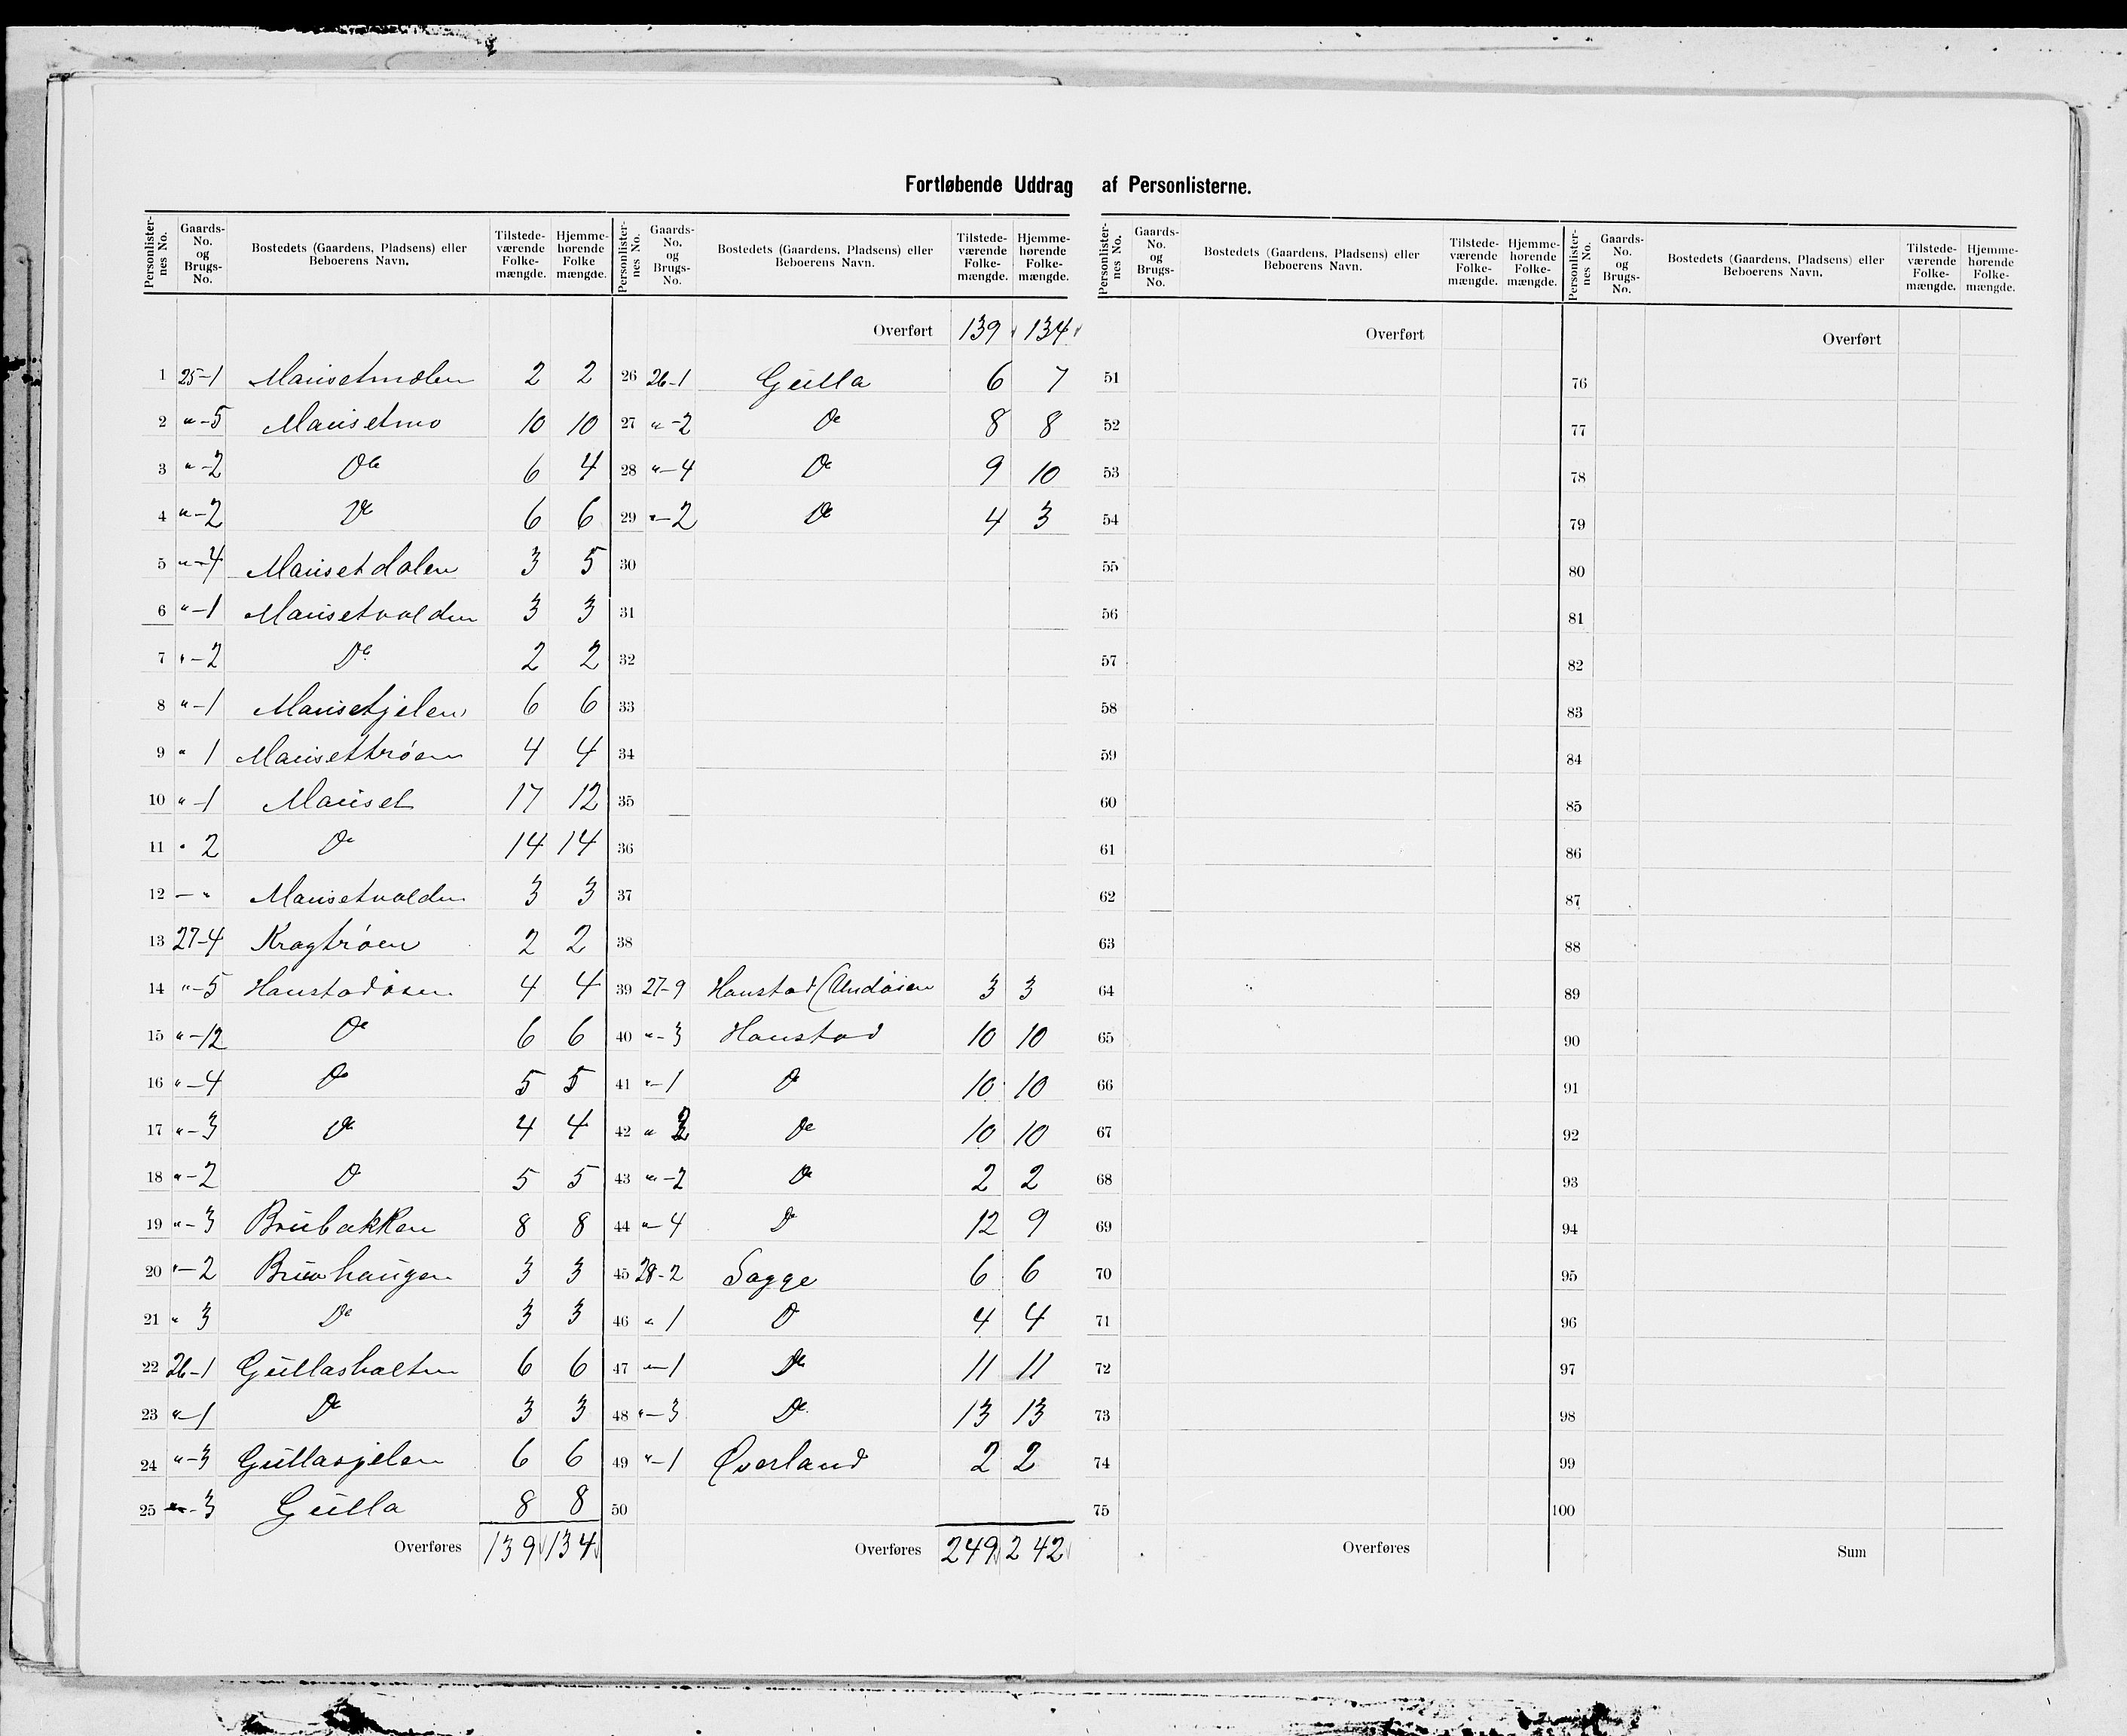 Fortløbende Uddrag af Personlisterne.
Personlister-nes No. | Gaards-No. og Brugs-No. | Bostedets (Gaardens, Pladsens) eller Beboerens Navn. | Tilstede-værende Folke-mængde. | Hjemme-hørende Folke mængde.
1 25-1 Mausetmolen 2 2
2 "-5 Mausetmo 10 10
3 "-2 Do 6 4
4 "-2 Do 6 6
5 "-4 Mausetdalen 3 5
6 "-1 Mausetvolden 3 3
7 "-2 Do 2 2
8 "-1 Mausetjelen 6 6
9 " 1 Mausettrøen 4 4
10 "-1 Mauset 17 12
11 " 2 Do 14 14
12 — " Mausetvolden 3 3
13 27-4 Kragtrøen 2 2
14 "-5 Haustadøien 4 4
15 "-12 Do 6 6
16 "-4 Do 5 5
17 "-3 Do 4 4
18 "-2 Do 5 5
19 "-3 Brubakken 8 8
20 "-2 Bruahaugen 3 3
21 " 3 Do 3 3
22 26-1 Gullashalten 6 6
23 "-1 Do 3 3
24 "-3 Gullasjelen 6 6
25 "-3 Gulla 8 8
Overføres 139 134
Personlister-nes No. | Gaards-No. og Brugs-No. | Bostedets (Gaardens, Pladsens) eller Beboerens Navn. | Tilstede-værende Folke-mængde. | Hjemme-hørende Folke-mængde.
Overført 139 134
26 26-1 Gulla 6 7
27 "-2 Do 8 8
28 "-4 Do 9 10
29 "-2 Do 4 3
30
31
32
33
34
35
36
37
38
39 27-9 Haustad (Undøien 3 3
40 "-3 Haustad 10 10
41 "-1 Do 10 10
42 " Do 10 10
43 "-2 Do 2 2
44 "-4 Do 12 9
45 28-2 Sagge 6 6
46 " 1 Do 4 4
47 "-1 Do 11 11
48 "-3 Do 13 13
49 "-1 Øverland 2 2
50
Overføres 249 242
Personlister-nes No. | Gaards-No. og Brugs-No. | Bostedets (Gaardens, Pladsens) eller Beboerens Navn. | Tilstede-værende Folke-mængde. | Hjemme-hørende Folke-mængde.
Overført
51
52
53
54
55
56
57
58
59
60
61
62
63
64
65
66
67
68
69
70
71
72
73
74
75
Overføres
Personlister-nes No. | Gaards-No. og Brugs-No. | Bostedets (Gaardens, Pladsens) eller Beboerens Navn. | Tilstede-værende Folke-mængde. | Hjemme-hørende Folke-mængde.
Overført
76
77
78
79
80
81
82
83
84
85
86
87
88
89
90
91
92
93
94
95
96
97
98
99
100
Sum